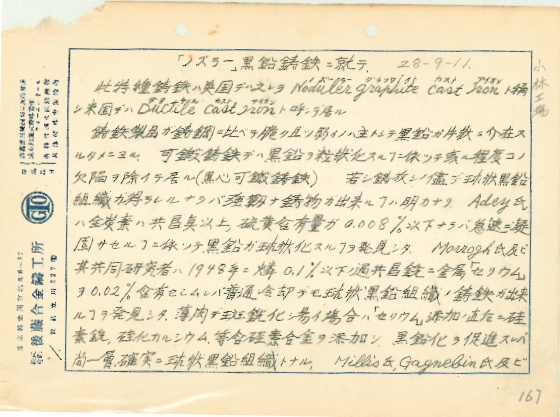 「ノヅラー」黒鉛鋳鉄ニ就テ. 28-9-11.
小林工場
此特種鋳鉄ハ英国デハ之レヲ Noduler graphite cast iron ト称
シ米国デハ Ductile cast iron ト呼ンデ居ル
鋳鉄製品ガ鋳鋼ニ比ベテ脆ク且ツ弱イハ主トシテ黒鉛ガ片状ニ介在ス
ルタメニヨル. 可鍛鋳鉄デハ黒鉛ヲ粒状化スルコニ依ツテ或ル程度コノ
欠陥ヲ除イテ居ル(黒心可鍛鋳鉄) 若シ鋳放シノ儘デ球状黒鉛
組織ガ得ラレルナラバ強靭ナ鋳物ガ出来ルコハ明カナリ Adey氏
ハ全炭素ハ共晶点以上, 硫黄含有量ガ0.008%以下ナラバ急速ニ凝
固サセルコニ依ツテ黒鉛ガ球状化スルコヲ発見シタ. Morrogh氏及ビ
其共同研究者ハ1948年ニ燐0.1%以下ノ過共晶鉄ニ金属「セリウム」
ヲ0.02%含有セシムレバ普通冷却デモ球状黒鉛組織ノ鋳鉄ガ出来
ルコヲ発見シタ. 薄肉デ斑銑化シ易イ場合ハ「セリウム」添加ノ直后ニ硅
素鉄, 硅化カルシウム, 等含硅素合金ヲ添加シ, 黒鉛化ヲ促進スレバ
尚一層確実ニ球状黒鉛組織トナル, Millis氏, Gagnebin氏及ビ
合資会社 後藤合金鋳工所
GTO
167